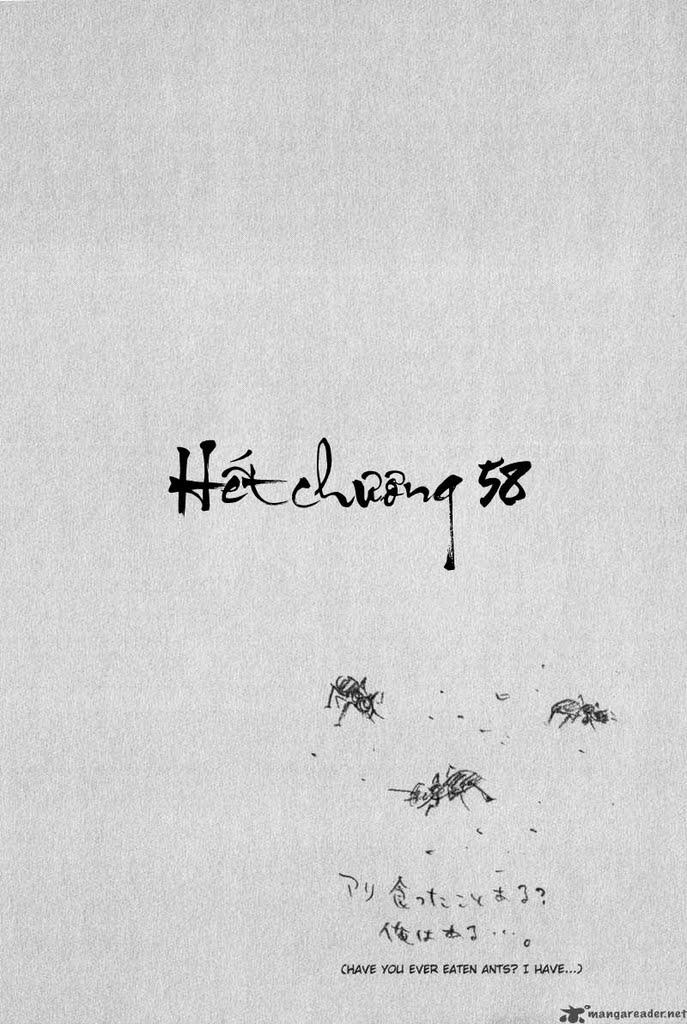 Hết chương 58
アリ 食ったことある?
俺はある…。
(HAVE YOU EVER EATEN ANTS? I HAVE...)
mangareader.net